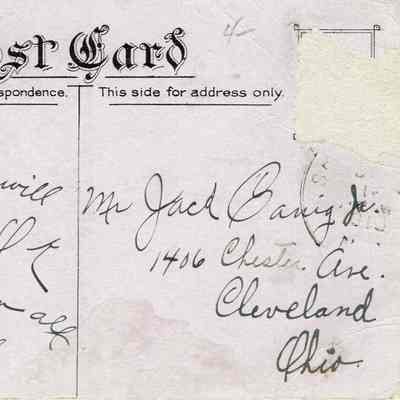 st Card
spondence.
This side for address only.
4
will
all
Mr Jack Canig Jr.
1406 Chester. Ave.
Cleveland
Ohio